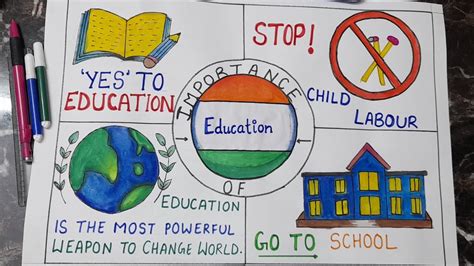 'YES' TO
EDUCATION
STOP!
CHILD
LABOUR
IMPORTANCE
OF
Education
EDUCATION
IS THE MOST POWERFUL
WEAPON TO CHANGE WORLD.
GO TO SCHOOL